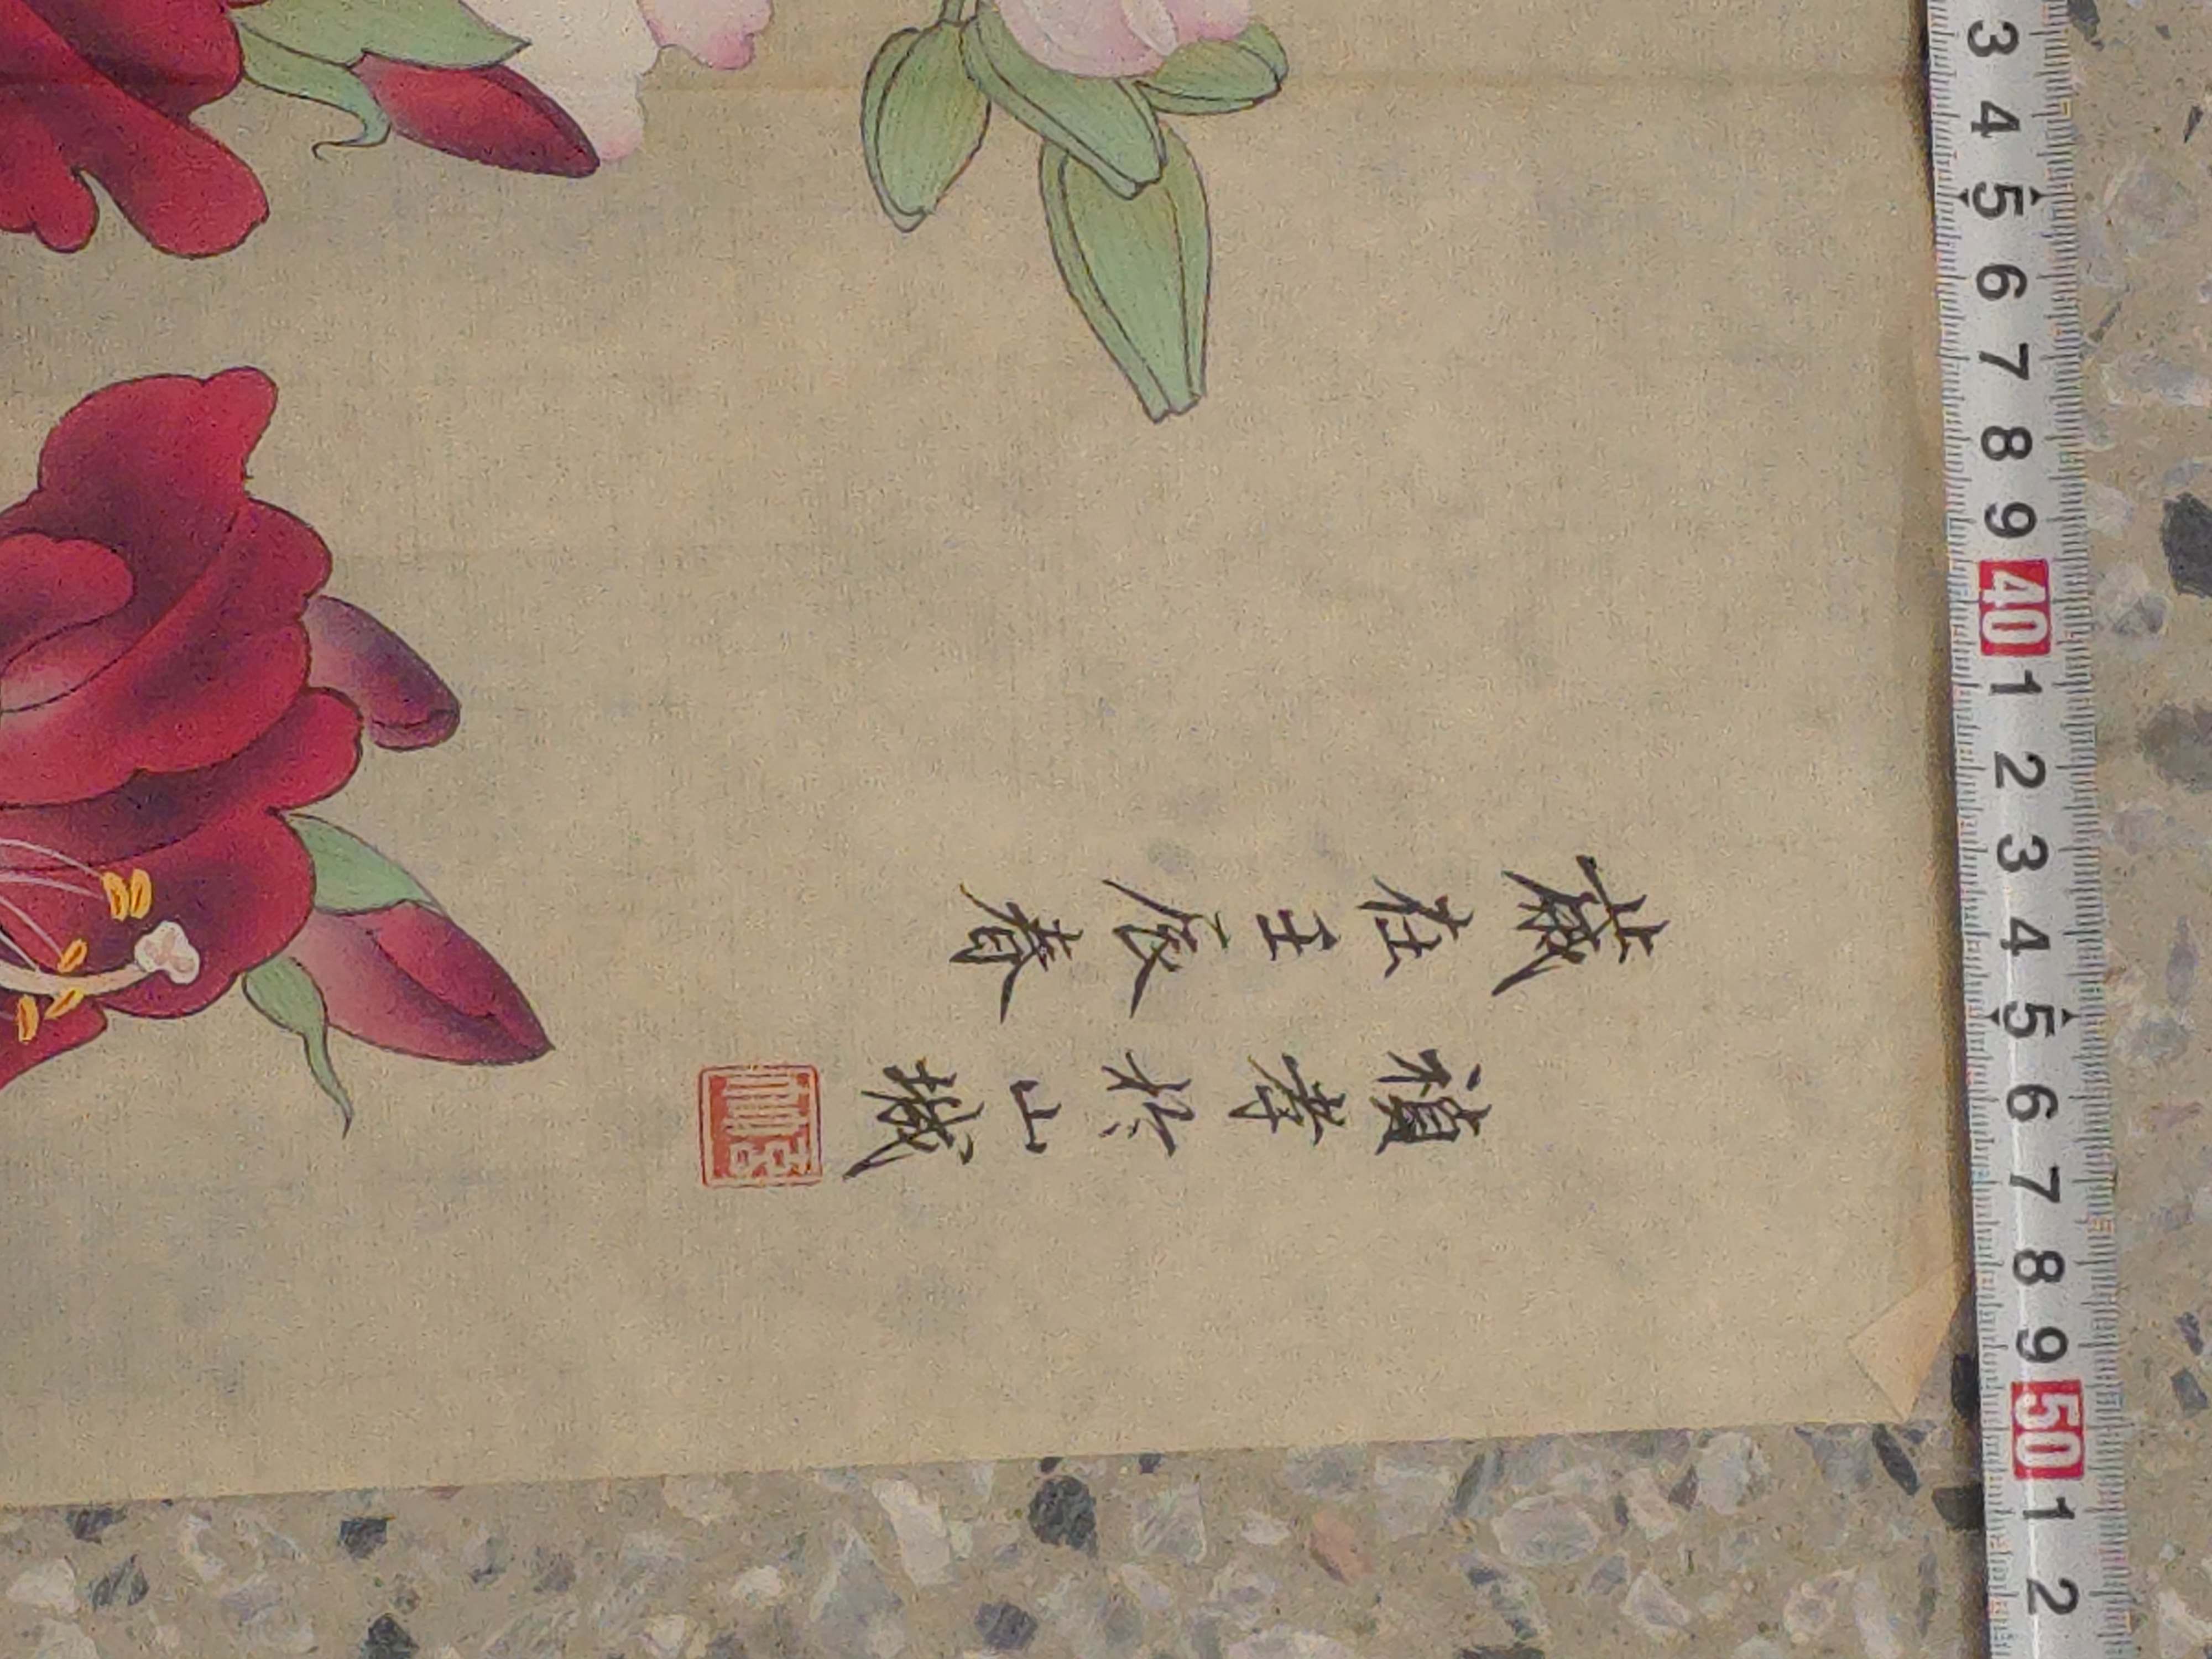 歲在壬辰春
禎孝於山
3 4 5 6 7 8 9 40 1 2 3 4 5 6 7 8 9 50 1 2